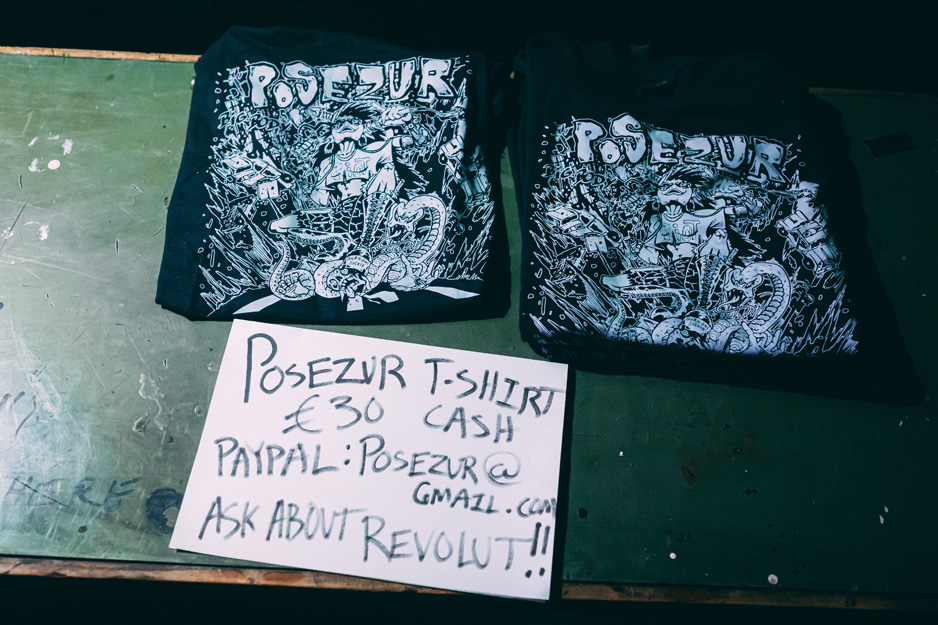 POSEZUR
POSEZUR
POSEZUR T-SHIRT
€30 CASH
PAYPAL: POSEZUR@
GMAIL.COM
ASK ABOUT REVOLUT!!